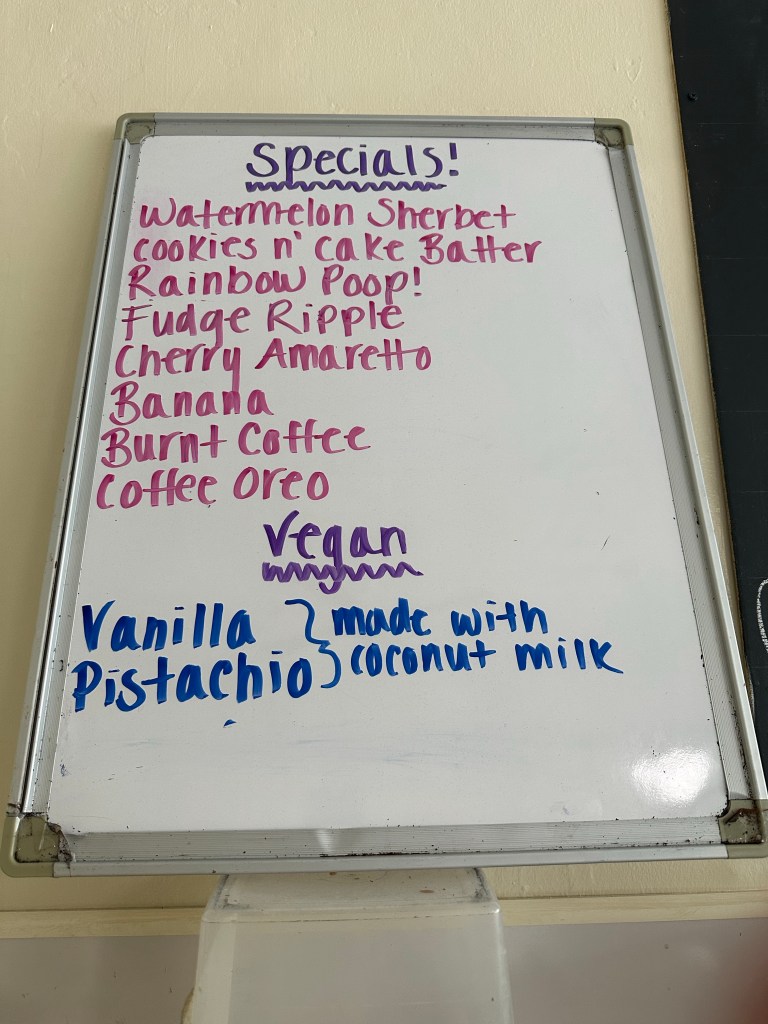 Specials!
Watermelon Sherbet
cookies n' cake Batter
Rainbow Poop!
Fudge Ripple
Cherry Amaretto
Banana
Burnt Coffee
Coffee Oreo
Vegan
Vanilla } made with
Pistachio } coconut milk